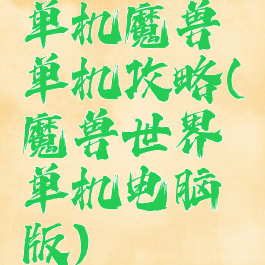 单机魔兽
单机攻略(
魔兽世界
单机电脑
版)